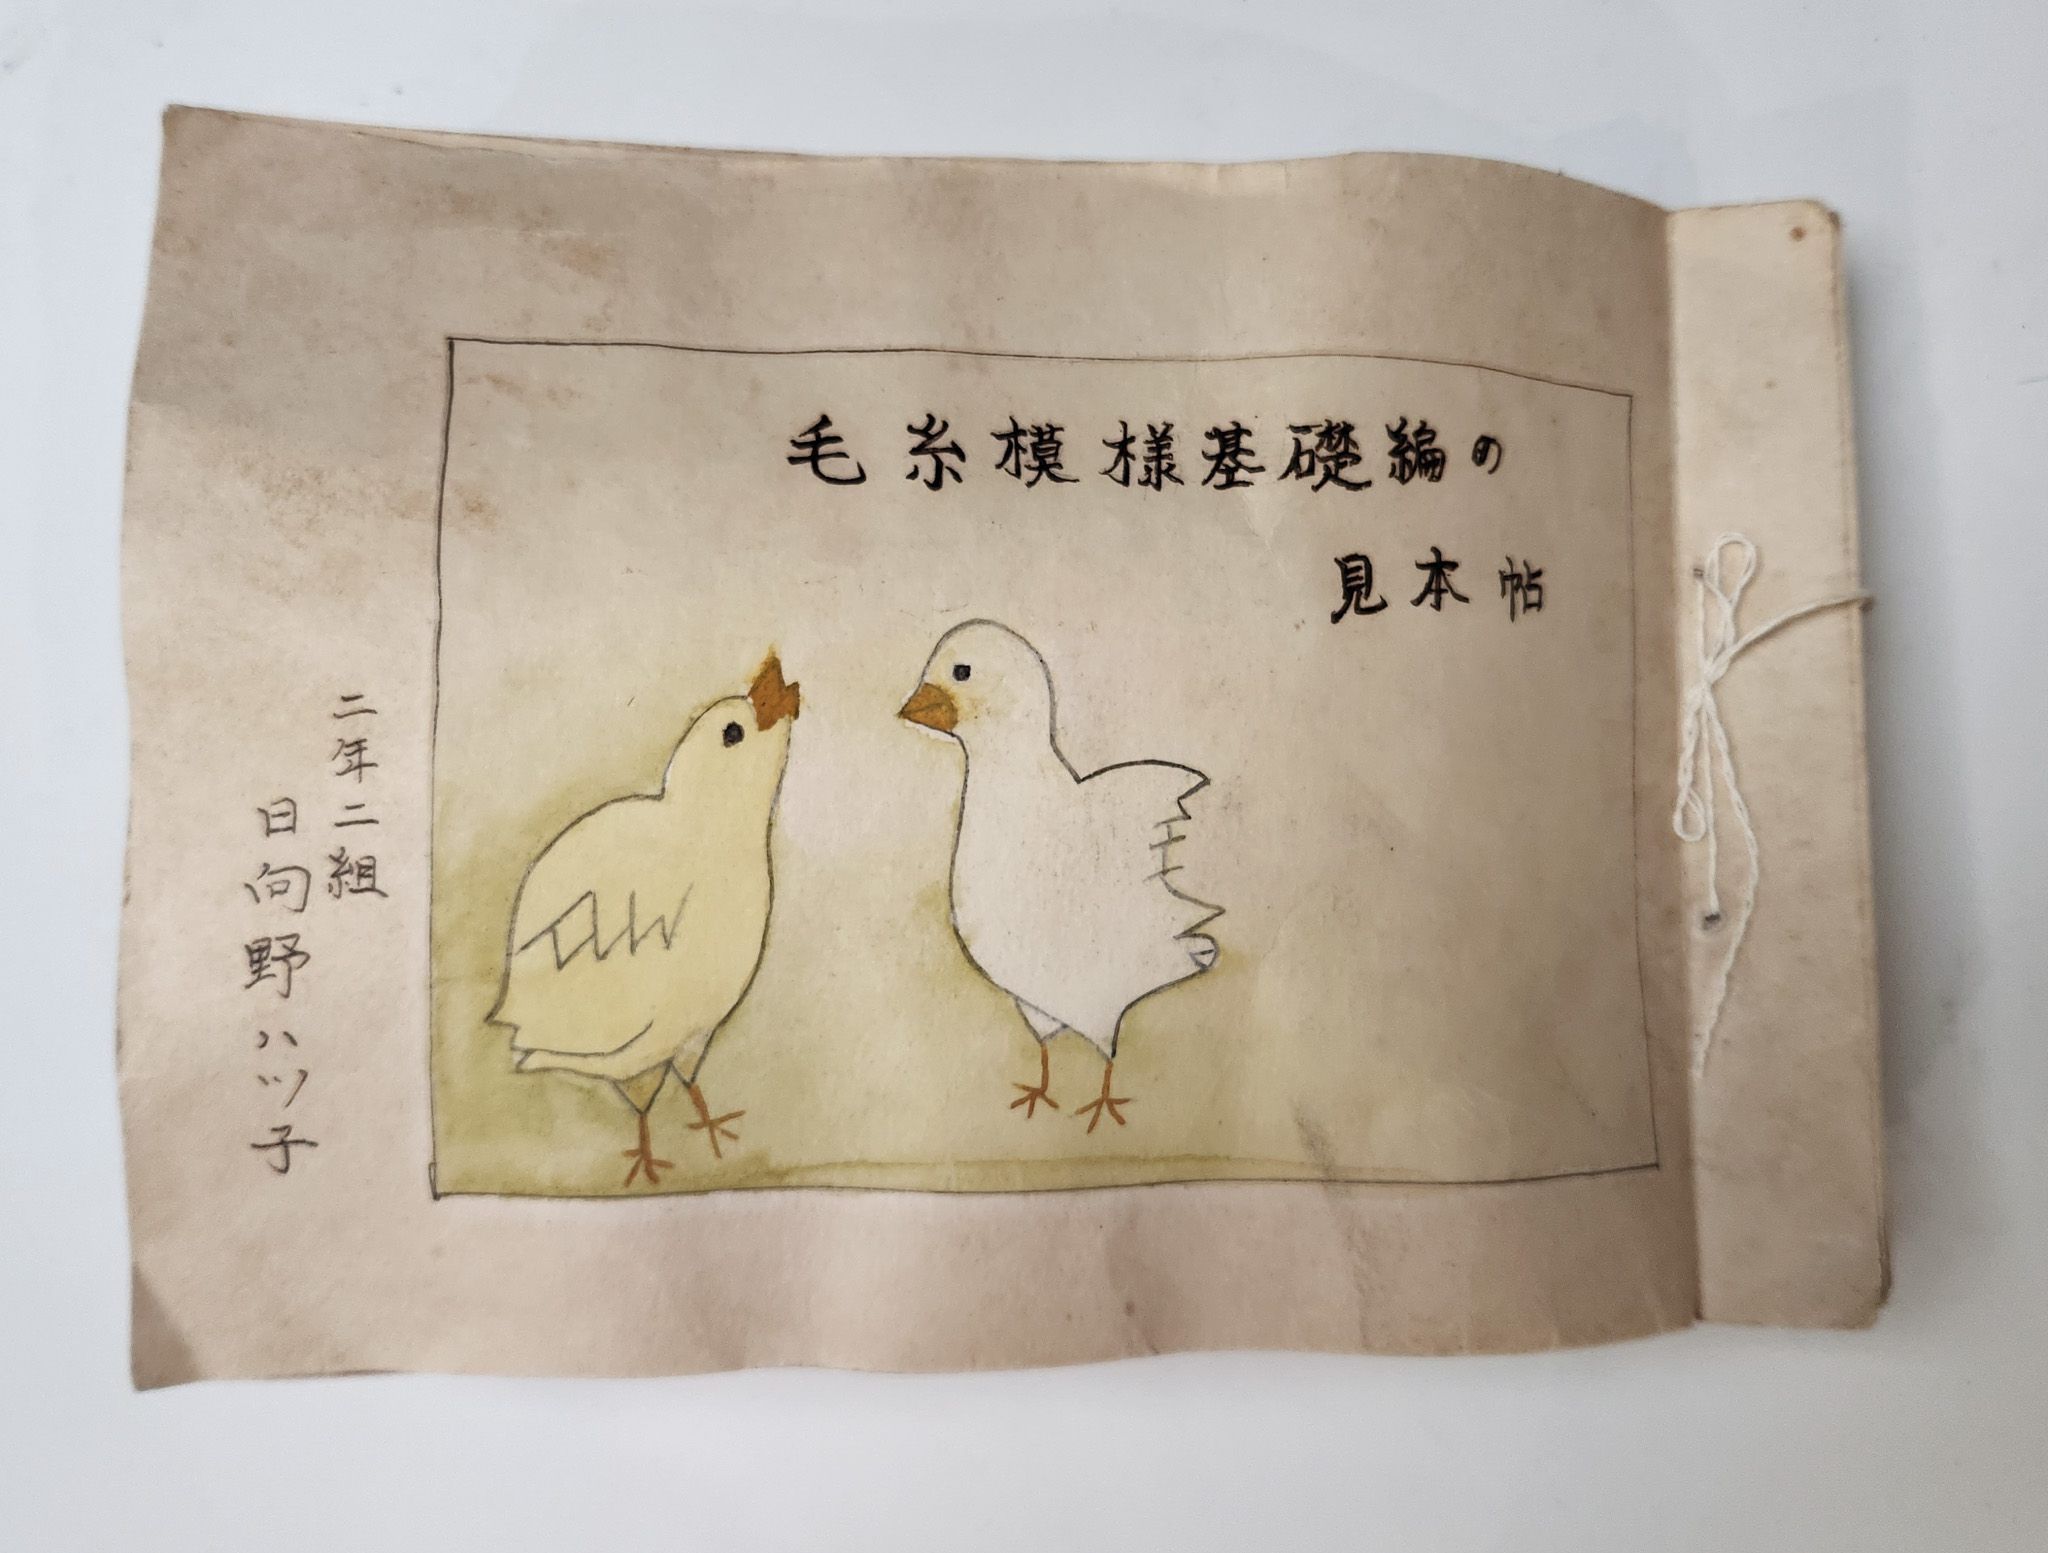 毛糸模様基礎編の
見本帖
二年二組
日向野ハツ子